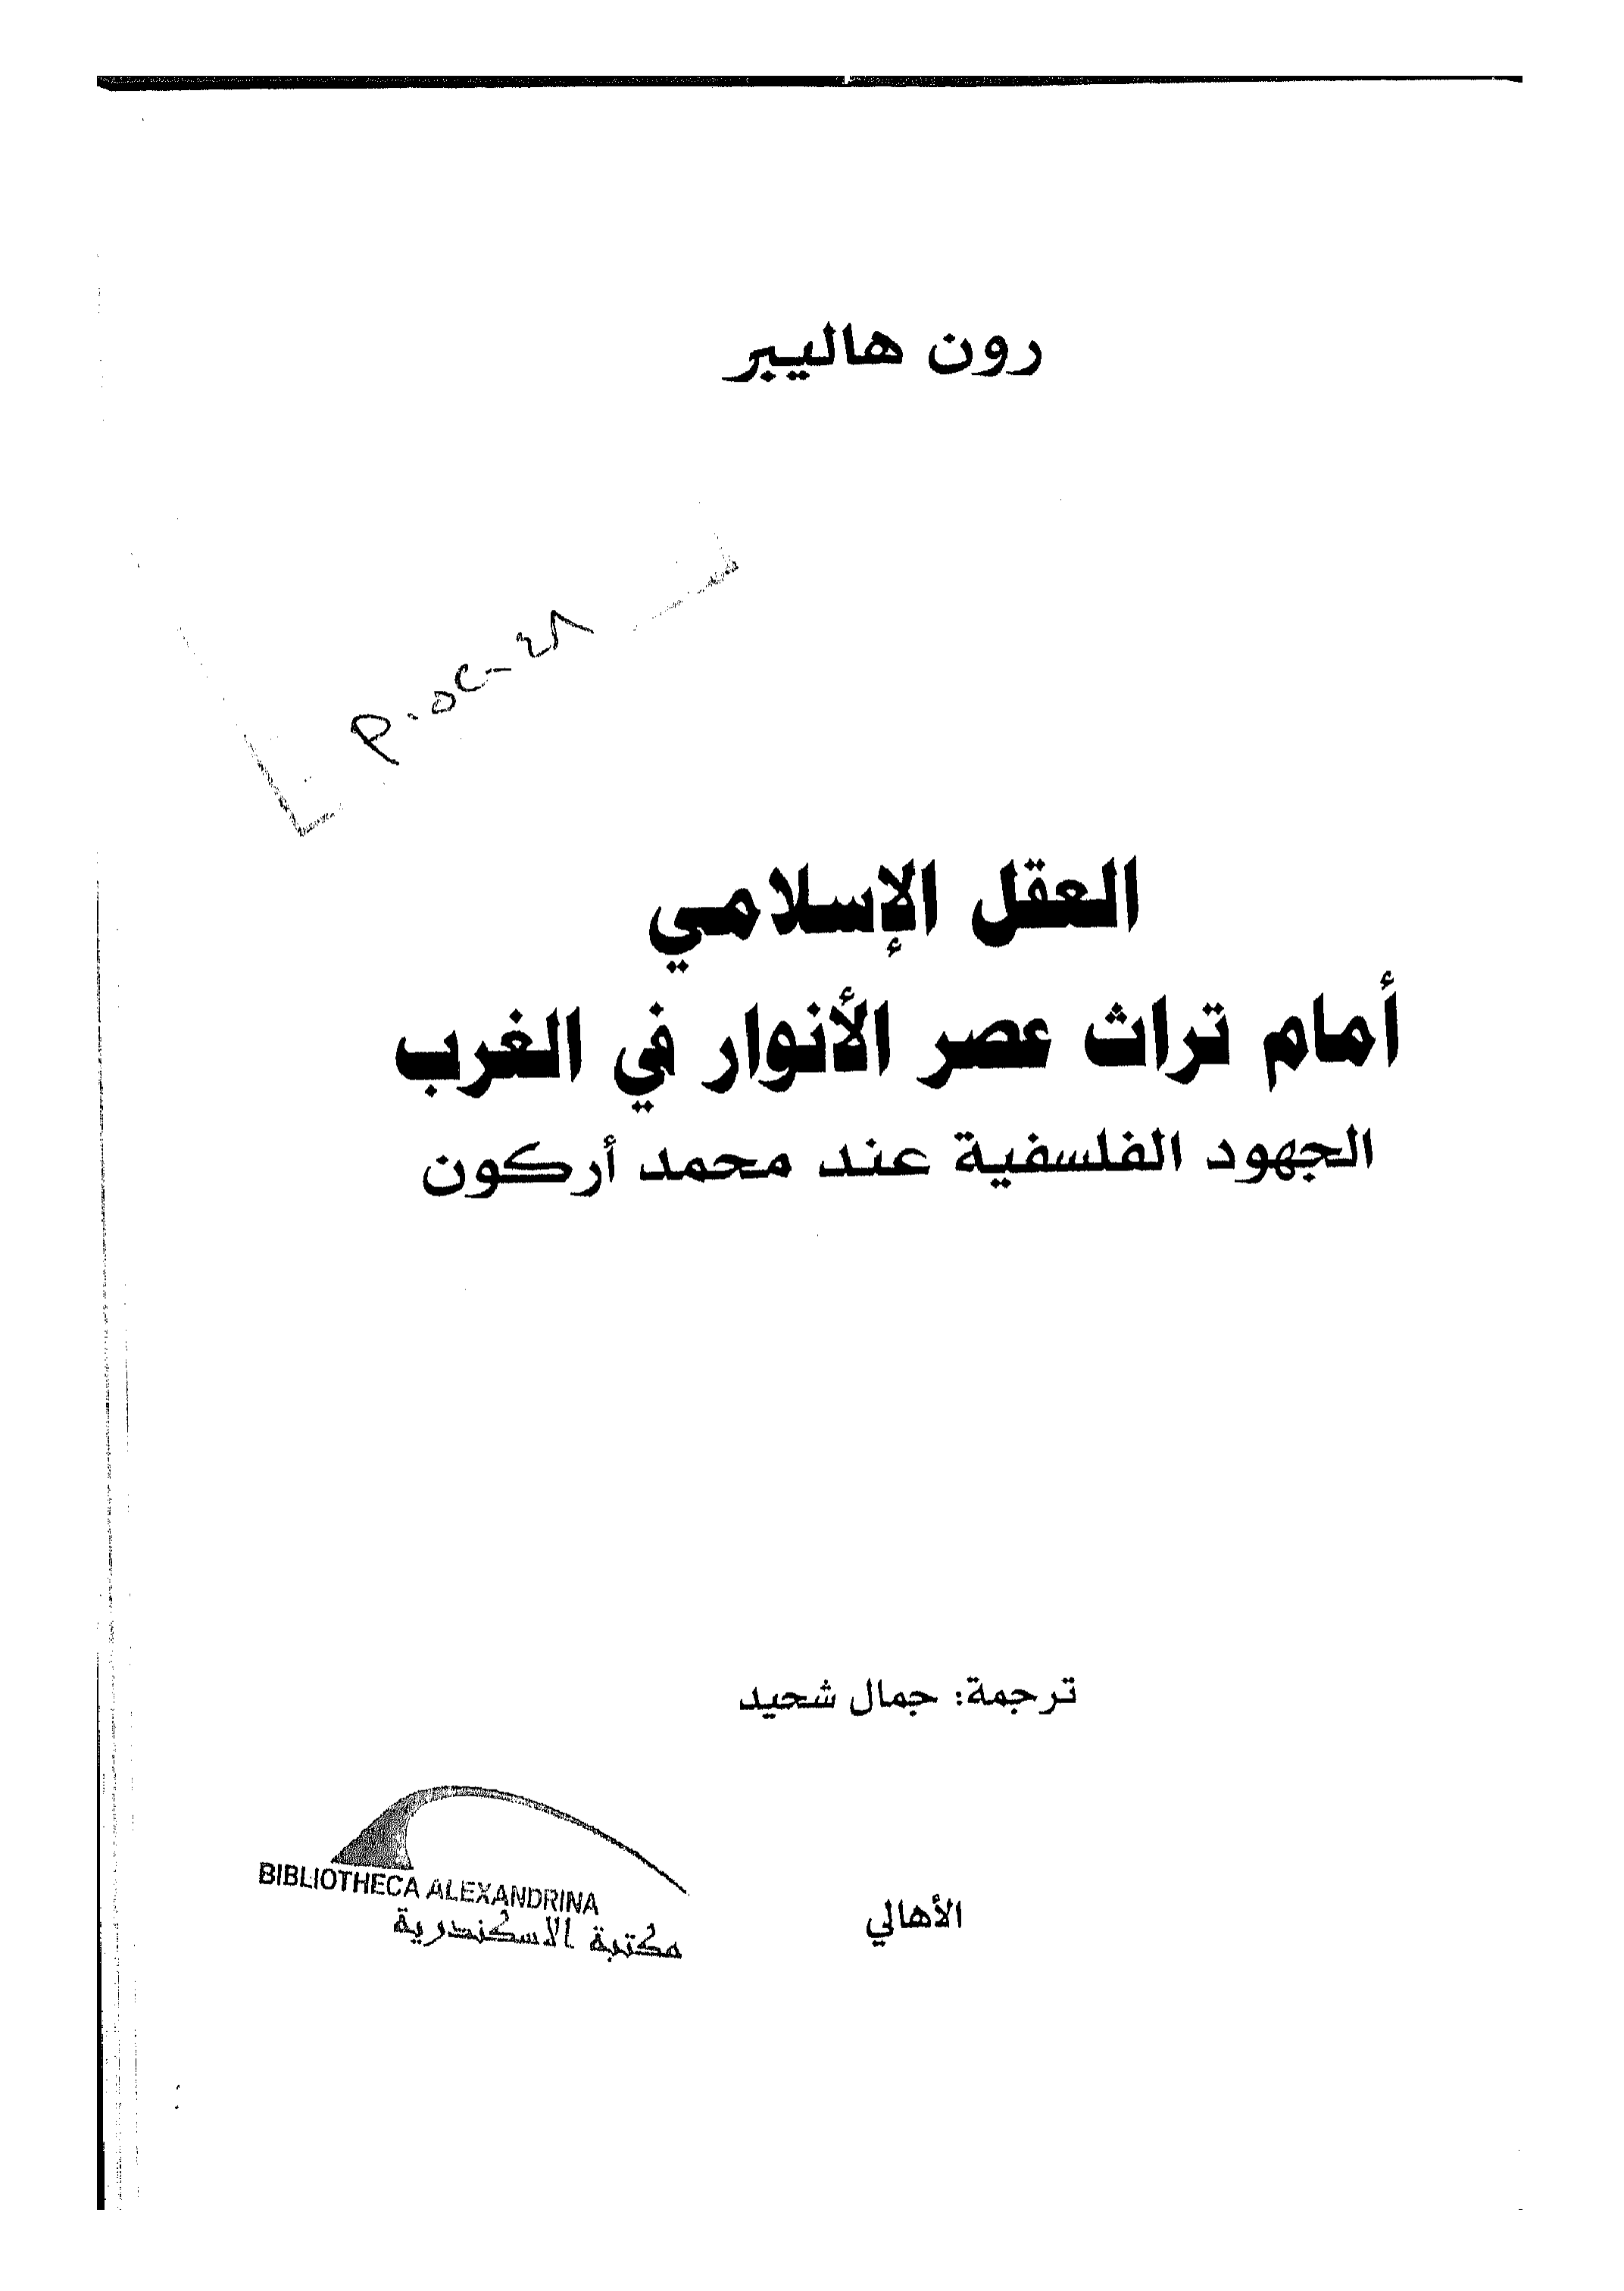 رون هاليبر
العقل الإسلامي
أمام تراث عصر الأنوار في الغرب
الجهود الفلسفية عند محمد أركون
ترجمة: جمال شحيد
الأهالي
BIBLIOTHECA ALEXANDRINA
مكتبة الاسكندرية